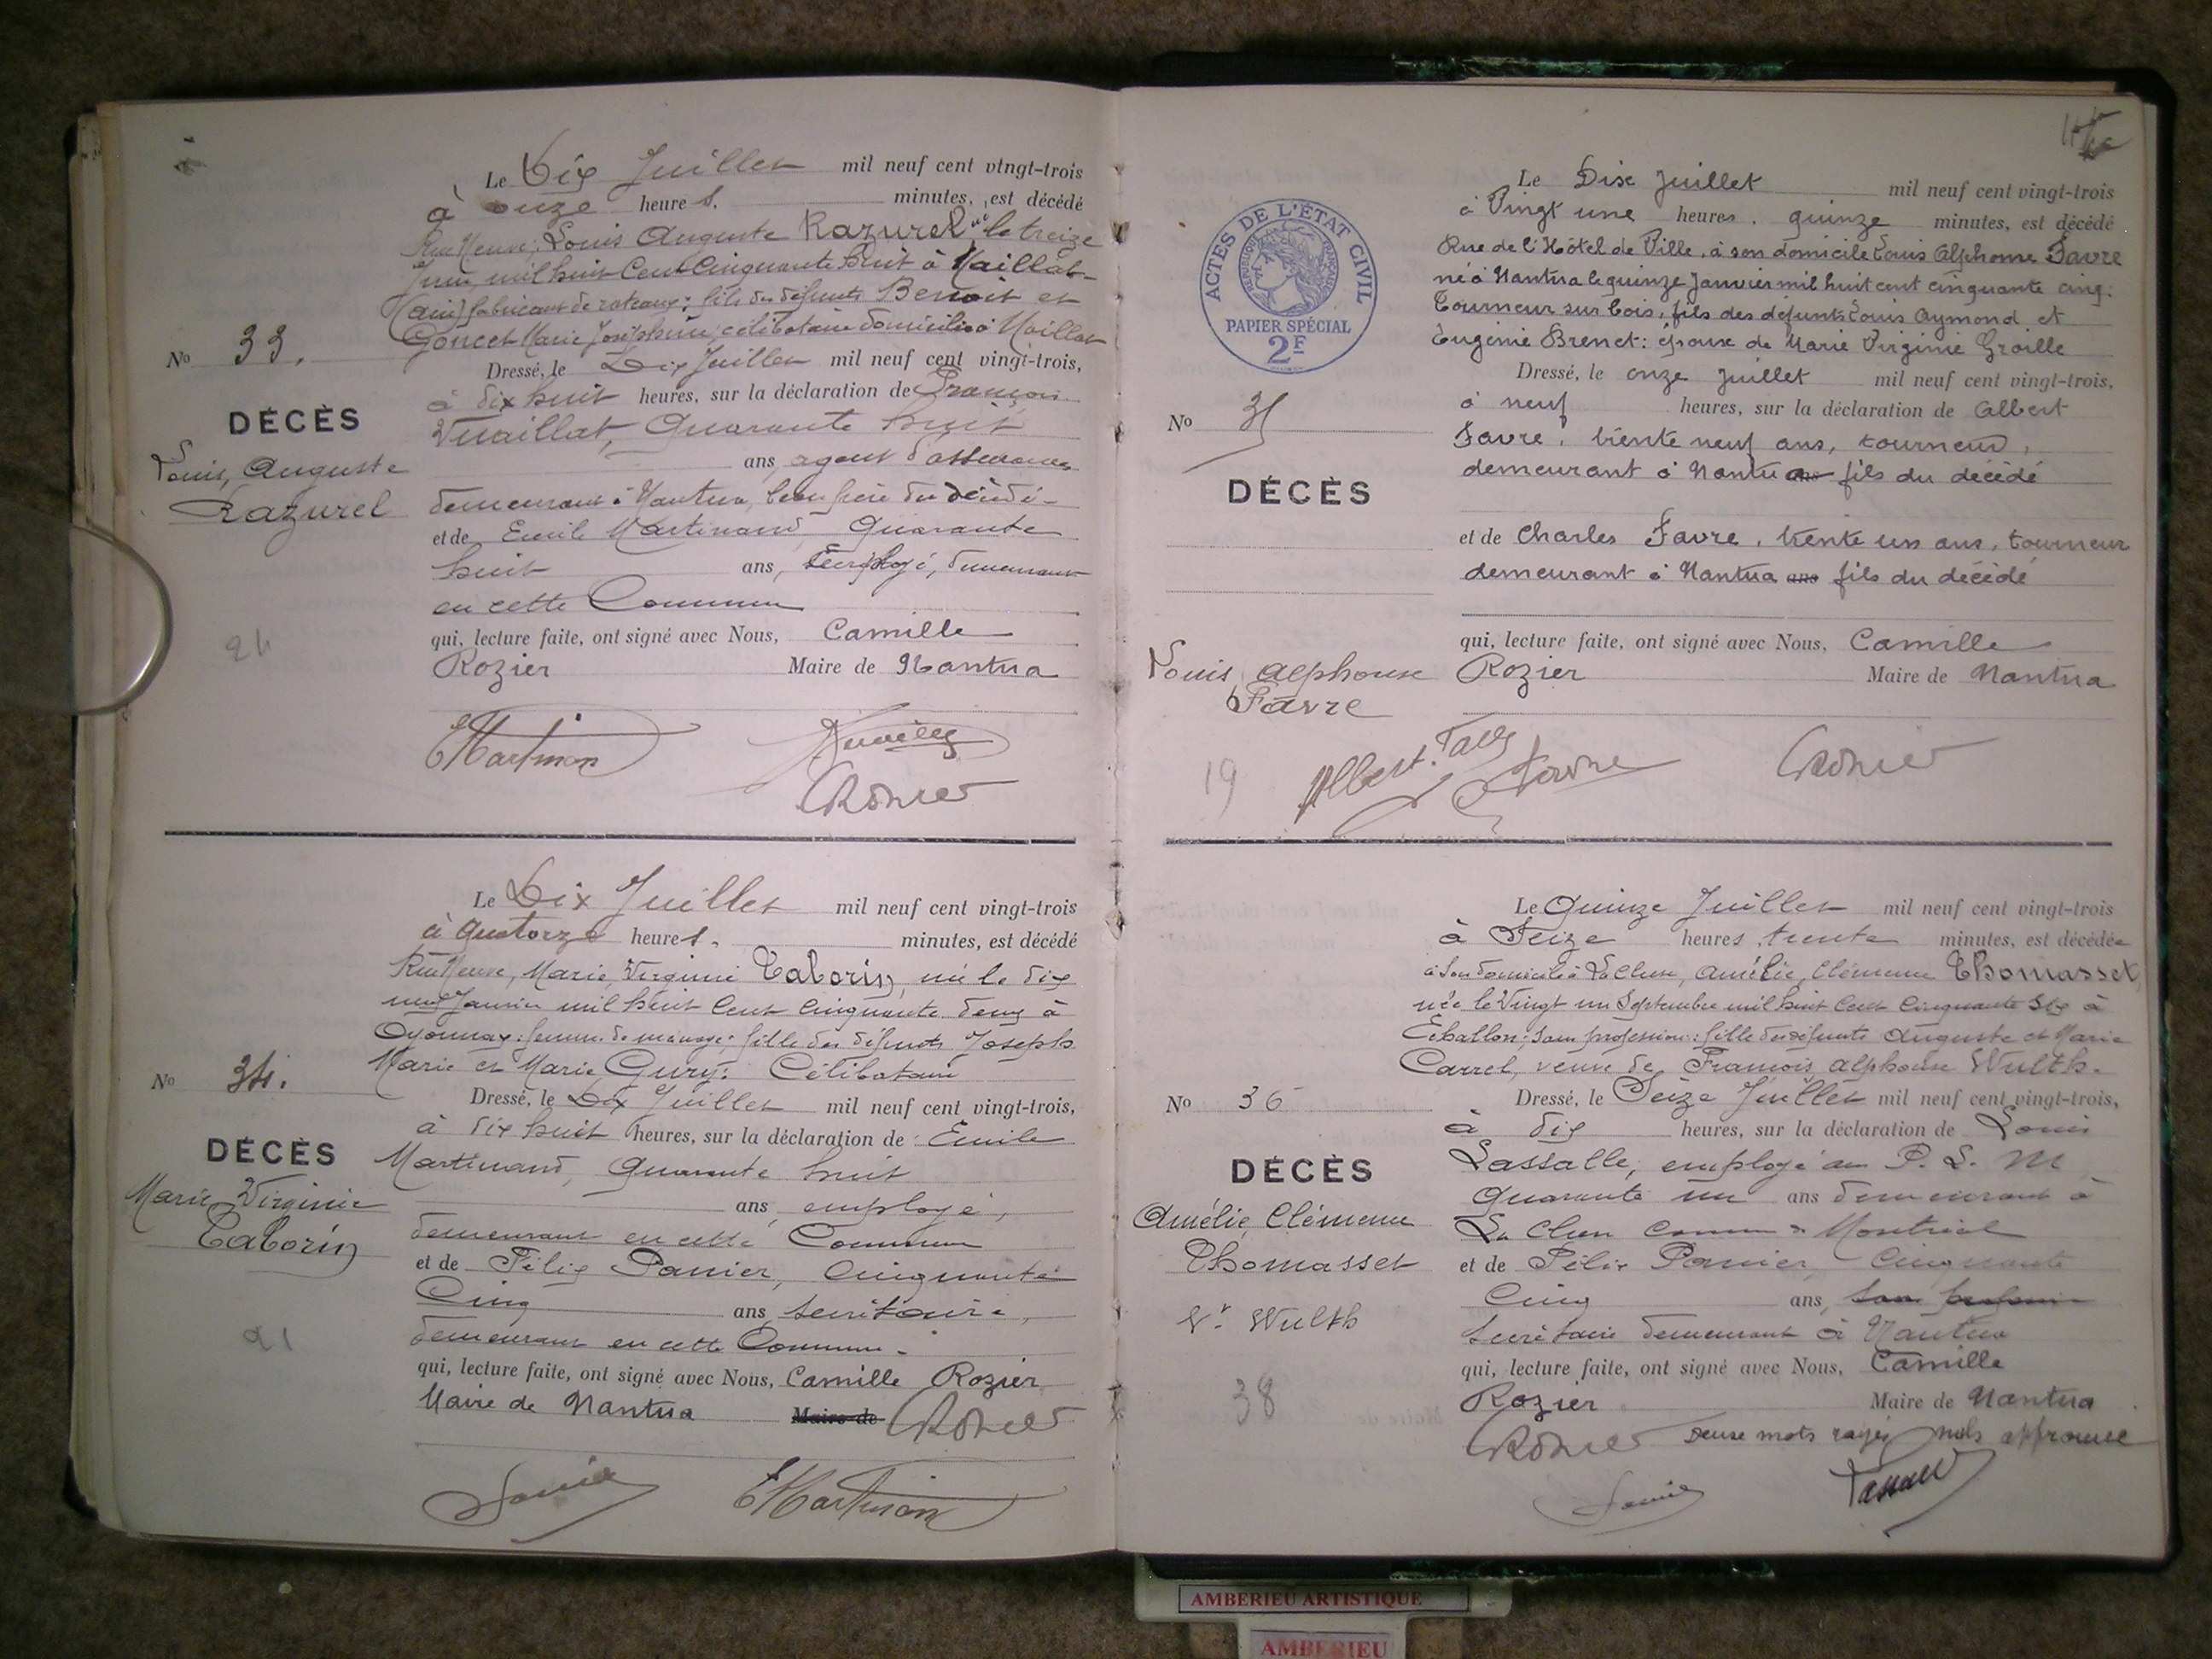 Le Dix Juillet mil neuf cent vingt-trois
à onze heures. minutes, est décédé
Rue Neuve, Louis Auguste Razurel né le treize
Juin mil huit Cent Cinquante huit à Maillat
(Ain) fabricant de rateaux; fils des défunts Benoit et
Goncet Marie Joséphine, célibataire domicilié à Maillat
No 33.
Dressé, le Dix Juillet mil neuf cent vingt-trois,
à dix huit heures, sur la déclaration de François
DÉCÈS
Vuaillat, Quarante huit
Louis, Auguste
Razurel
ans, agent d'assurances
demeurant à Nantua, beau frère du décédé
et de Emile Martinand Quarante
huit ans, Employé, demeurant
en cette Commune
24
qui, lecture faite, ont signé avec Nous, Camille
Rozier Maire de Nantua
EMartinand
CRozier
Le Dix Juillet mil neuf cent vingt-trois
à Quatorze heures. minutes, est décédé
Rue Neuve, Marie, Virginie Taborin, née le dix
neuf Janvier mil huit Cent Cinquante deux à
Oyonnax: femme de ménage: fille des défunts Joseph
Marie et Marie Gury: Célibataire
No 34.
Dressé, le Dix Juillet mil neuf cent vingt-trois,
à dix huit heures, sur la déclaration de Emile
DÉCÈS
Martinand, Quarante huit
Marie Virginie
Taborin
ans, employé,
demeurant en cette Commune
et de Félix Panier, Cinquante
Cinq ans, Secrétaire,
demeurant en cette Commune.
21
qui, lecture faite, ont signé avec Nous, Camille Rozier
Maire de Nantua Maire de CRozier
Panier EMartinand
ACTES DE L'ÉTAT CIVIL
RÉPUBLIQUE FRANÇAISE
PAPIER SPÉCIAL
2F
Le Dix Juillet mil neuf cent vingt-trois
à Vingt une heures. quinze minutes, est décédé
Rue de l'Hôtel de Ville, à son domicile Louis Alphonse Favre
né à Nantua le quinze Janvier mil huit cent cinquante cinq.
Tourneur sur bois, fils des défunts Louis Aymond et
Eugénie Brenet: époux de Marie Virginie Groille
Dressé, le onze Juillet mil neuf cent vingt-trois,
No 35
à neuf heures, sur la déclaration de Albert
Favre, trente neuf ans, tourneur,
demeurant à Nantua ans fils du décédé
DÉCÈS
et de Charles Favre, trente un ans, tourneur
demeurant à Nantua ans fils du décédé
qui, lecture faite, ont signé avec Nous, Camille
Louis Alphonse
Favre
Rozier Maire de Nantua
19
Albert Favre CFavre CRozier
Le Quinze Juillet mil neuf cent vingt-trois
à Seize heures, trente minutes, est décédée
à son domicile à La Cluse, Amélie, Clémence Thomasset
née le Vingt un Septembre mil huit Cent Cinquante Six à
Echallon: Sans profession: fille des défunts Auguste et Marie
Carrel, veuve de François Alphonse Wulth.
No 36
Dressé, le Seize Juillet mil neuf cent vingt-trois,
à dix heures, sur la déclaration de Louis
DÉCÈS
Lassalle, employé au P. L. M
Quarante un ans demeurant à
Amélie, Clémence
Thomasset
La Cluse Commune de Montréal
et de Félix Panier, Cinquante
Cinq ans, Sans profession
Ve Wulth
Secrétaire demeurant à Nantua
qui, lecture faite, ont signé avec Nous, Camille
38
Rozier Maire de Nantua
CRozier Deux mots rayés nuls approuvé
Panier Lassalle
AMBERIEU ARTISTIQUE
AMBERIEU